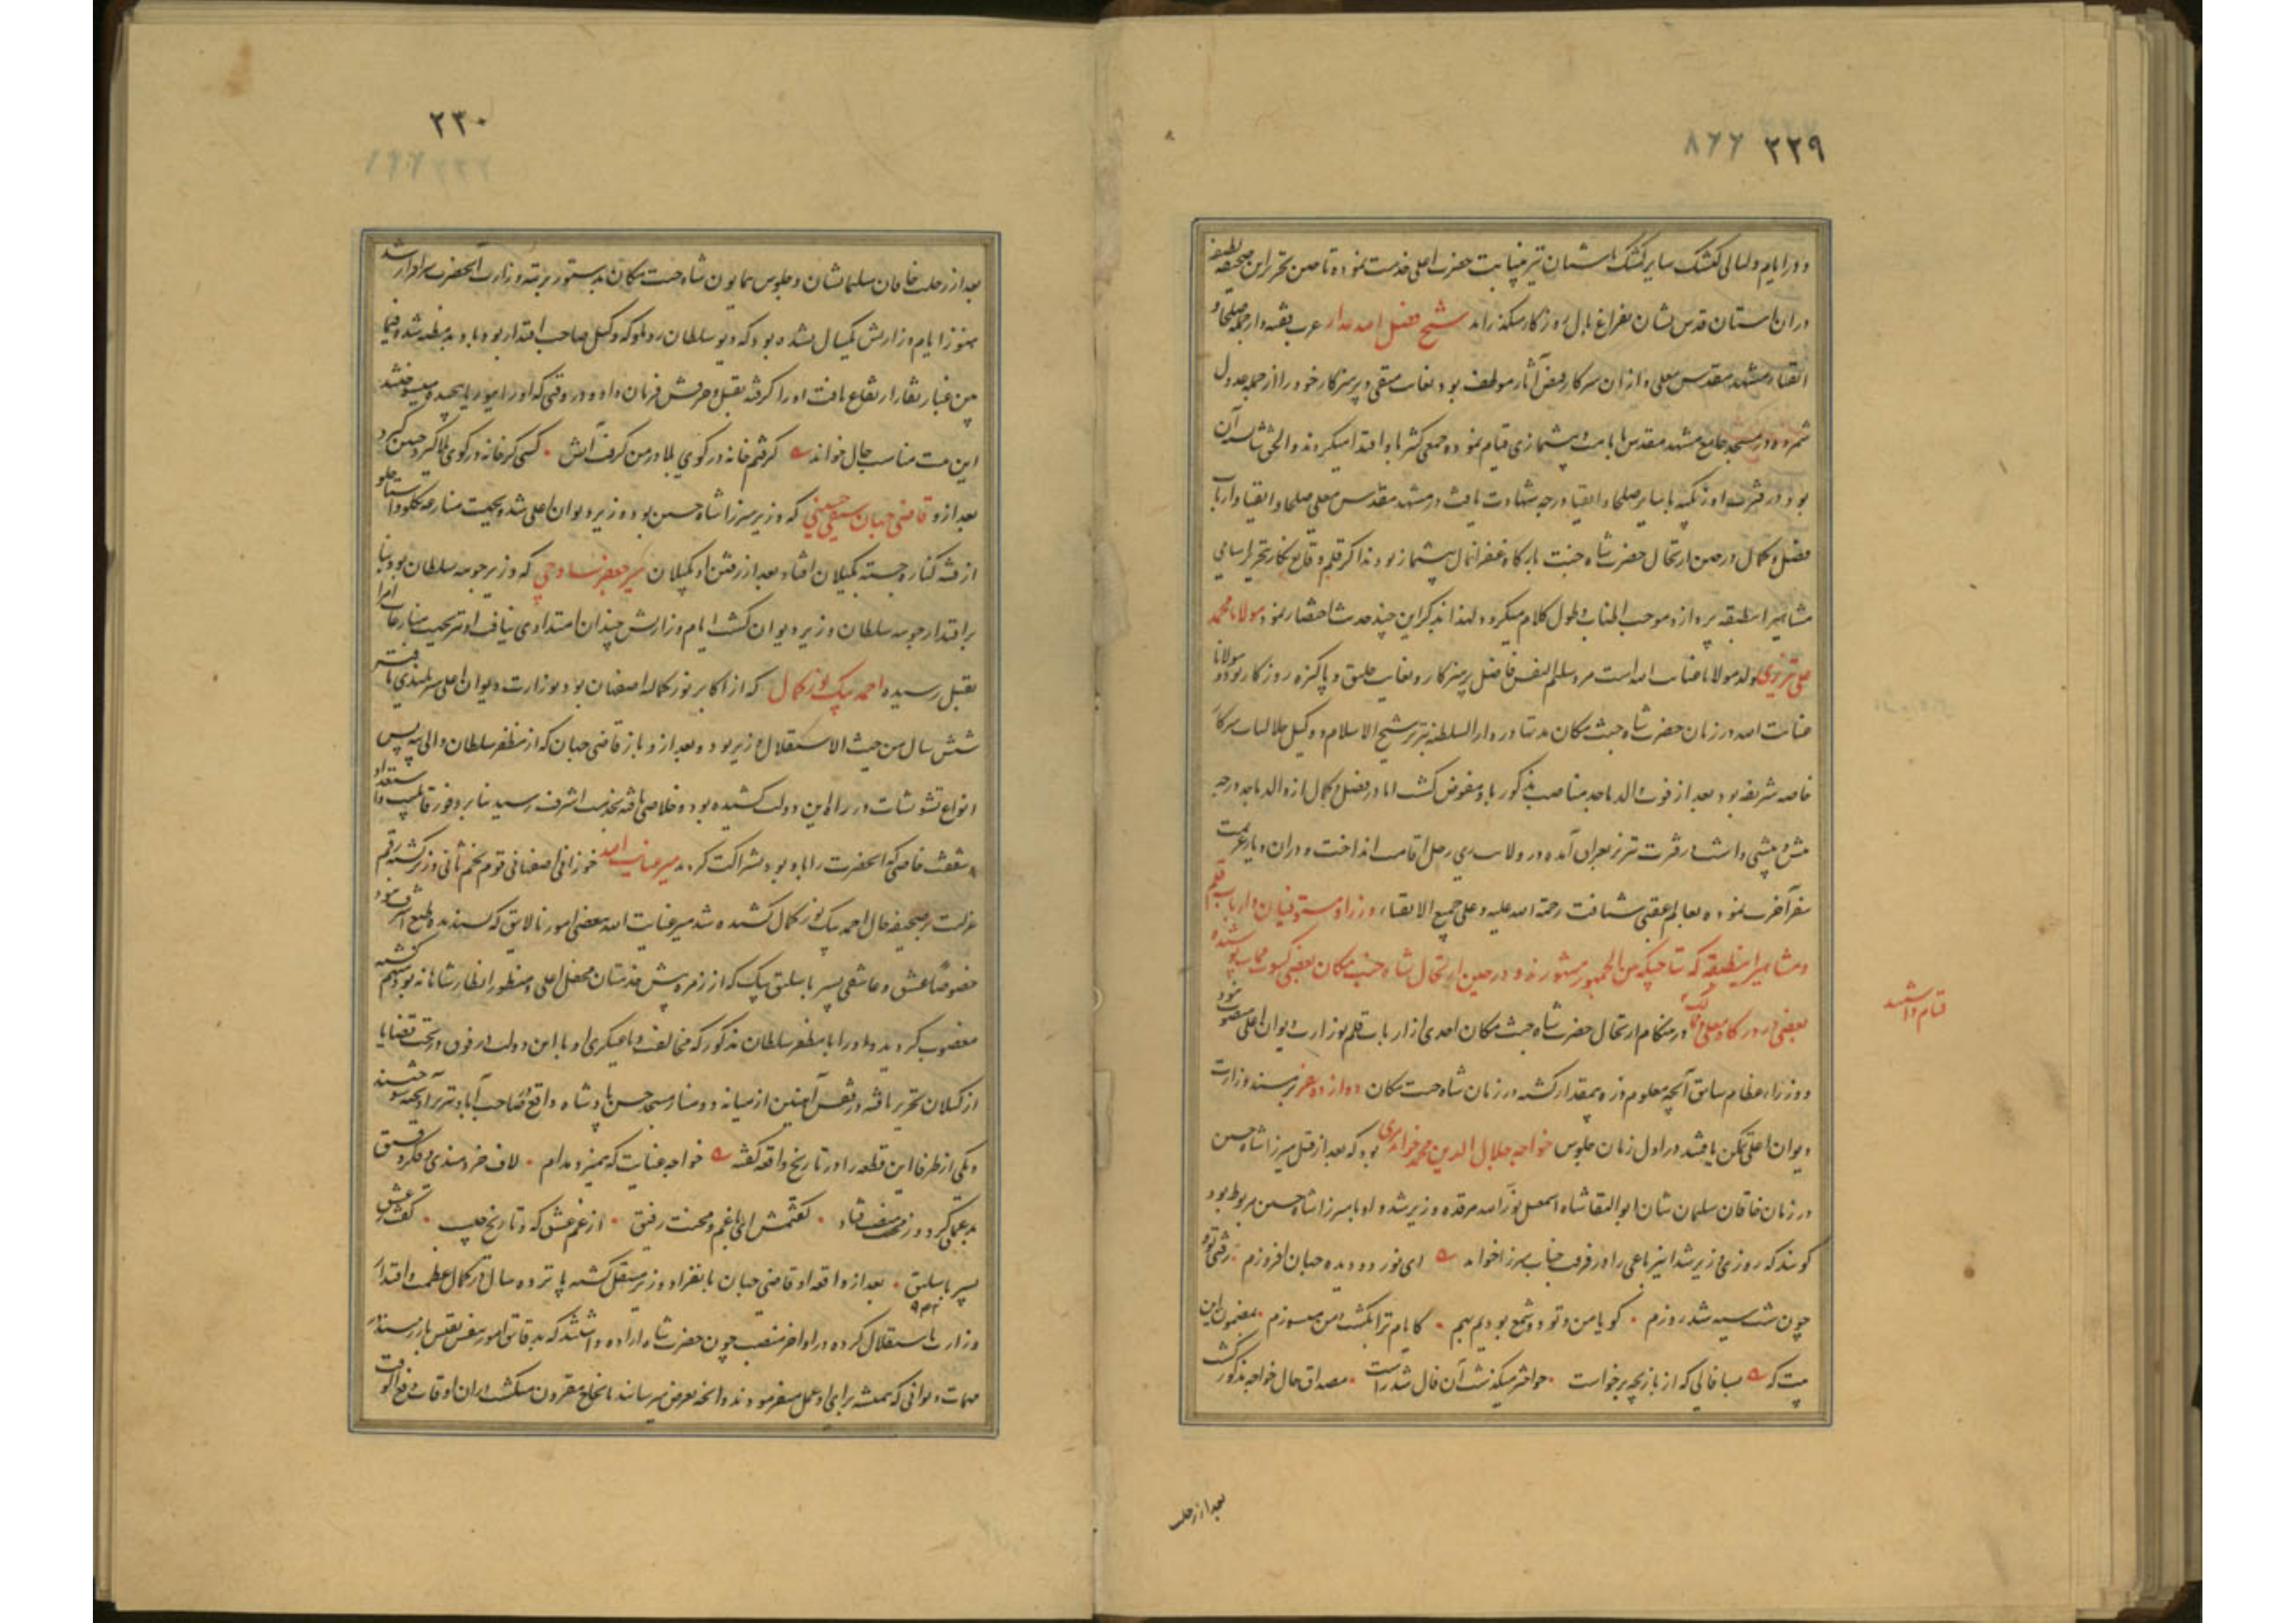 ۲۲۹ ۸۶۶
و در ایام و لیالی کشک سایر کشک آستان نیز بنیابت حضرت اعلی خدمت نموده تا حین تحریر این صحیفه لطیفه
در ان آستان قدس نشان بفراغ بال روزگار میگذراند شیخ فضل الله عرب فقیه و از جمله صلحا و
اتقیاء مشهد مقدس معلی و از ان سرکار فیض آثار موظف بود بغایت متقی و پرهیزکار خود را از جمله عدول
شمرده در مسجد جامع مشهد مقدس بامامت و پیشنمازی قیام نموده جمعی کثیر باو اقتدا میکردند و الحق شایسته آن
بود در فترت اوزبکیه با سایر صلحا و اتقیا درجه شهادت یافت در مشهد مقدس معلی صلحا و اتقیا و ارباب
فضل و کمال در حین ارتحال حضرت شاه جنت بارگاه غفرانمآل بیشمار بودند اگر قلم وقایع نگار بتحریر اسامی
مشاهیر این طبقه پردازد موجب اطناب و طول کلام میگردد لهذا بذکر این چند حدیث اختصار نمود مولانا محمد
علی تبریزی ولد مولانا عنایت الله است مرد سلیم النفس فاضل پرهیزکار و بغایت خلیق و پاکیزه روزگار بود و مولانا
عنایت الله در زمان حضرت شاه جنت مکان مدتها در دار السلطنه تبریز شیخ الاسلام و وکیل حلالیات سرکار
خاصه شریفه بود بعد از فوت والد ماجد مناصب مذکور باو مفوض گشت اما در فضل و کمال از والد ماجد درجه
بیش و پیشی داشت در فترت تبریز بعراق آمده در ولایت ری رحل اقامت انداخت و در ان دیار عزیمت
سفر آخرت نموده بعالم عقبی شتافت رحمة الله علیه و علی جمیع الاتقیاء وزرا و مستوفیان و ارباب قلم
و مشاهیر این طبقه که تا حین الجمهور مشهورند و در حین ارتحال شاه جنت مکان بعضی کسوت حیات پوشیده
بعضی در درگاه معلی در هنگام ارتحال حضرت شاه جنت مکان احدی از ارباب قلم بوزارت دیوان اعلی منصوب نبود
قیام داشتند
و وزراء عظام سابق آنچه معلوم ذره بیمقدار گشته در زمان شاه جنت مکان دوازده عزیز بمسند وزارت
دیوان اعلی تمکن یافتند در اول زمان جلوس خواجه جلال الدین محمد خواندمیری بود که بعد از قتل میرزا شاه حسین
در زمان خاقان سلیمان شان ابو البقا شاه اسمعیل نور الله مرقده وزیر شد و او با میرزا شاه حسین مربوط بود
گویند که روزی وزیر شد این رباعی را در فرقت جناب میرزا خواند ای نور دو دیده جهان افروزم رفتی تو و
چون شب سیه شد روزم گویا من و تو دو شمع بودیم بهم کایام ترا بکشت و من میسوزم بمضمون این
بیت که بسا فالی که از بازیچه برخاست چو اختر میگذشت آن فال شد راست مصداق حال خواجه مذکور گشت
بعد از رحلت
۲۳۰
بعد از رحلت خاقان سلیمان شان و جلوس همایون شاه جنت مکان بدستور برتبه وزارت آنحضرت سرافراز شد
هنوز ایام وزارتش یکسال نشده بود که دیو سلطان روملو که وکیل صاحب اقتدار بود باو بدمظنه شد و فیما
بین غبار نقار ارتفاع یافت او را گرفته بقتل و حرقش فرمان داد و در وقتی که او را در بوریا پیچیده میسوختند
این بیت مناسب حال خواند گرفتم خانه در کوی بلا در من گرفت آتش کسی کو خانه در کوی بلا گیرد چنین گیرد
بعد ازو قاضی جهان سیفی حسینی که وزیر میرزا شاه حسین بود وزیر دیوان اعلی شد و بجهت منازعه تکلو و استاجلو
از فتنه کناره جسته بگیلان افتاد بعد از رفتن او بگیلان میر جعفر ساوجی که وزیر جوهه سلطان بود بنا
بر اقتدار جوهه سلطان وزیر دیوان گشت ایام وزارتش چندان امتدادی نیافت او نیز بجهت منازعات امرا
بقتل رسیده احمد بیک نور کمال که از اکابر نور کمالیه اصفهان بود بوزارت دیوان اعلی سربلندی یافته
شش سال من حیث الاستقلال وزیر بود و بعد ازو باز قاضی جهان که از مظفر سلطان والی بیه پس
انواع تشویشات در راه این دولت کشیده بود و خلاصی یافته بخدمت اشرف رسید بنا بر وفور قابلیت و استعداد
و شفقت خاصی که آنحضرت را باو بود بشراکت کرد به میر عنایت الله خوزانی اصفهانی قوم نجم ثانی وزیر گشته رقم
عزلت بر صحیفه حال احمد بیک نور کمال کشیده شد میر عنایت الله ببعضی امور نالایق که پسندیده طبع اشرف نبود
خصوصا عشق و عاشقی پسر باسلیق بیک که از زمره پیش خدمتان محفل اعلی و منظور انظار شاهانه بود متهم گشته
مغضوب گردید و او را با مظفر سلطان مذکور که مخالفت و یاغیگری او با این دولت در فوق و تحت قضایا
از گیلان تحریر یافته در قفس آهنین از میانه دو منار مسجد حسن پادشاه واقع در صاحب آباد تبریز آویخته سوختند
و یکی از ظرفا این قطعه را در تاریخ واقعه گفته خواجه عنایت که بمیزد مدام لاف خردمندی و فکر دقیق
گفتمش ای با غم و محنت رفیق از غم عشق که و تاریخ طلب گفت ز عشق
پسر باسلیق بعد از واقعه او قاضی جهان بانفراد وزیر مستقل گشته پانزده سال در کمال عظمت و اقتدار
۹۴۲
وزارت باستقلال کرده در اواخر منصب چون حضرت شاه اراده داشتند که بدقایق امور بنفس نفیس باز رسند
مهمات دیوانی که همیشه برای او عمل میفرمودند و آنچه بعرض میرسانید بانجاح مقرون میگشت در ان اوقات